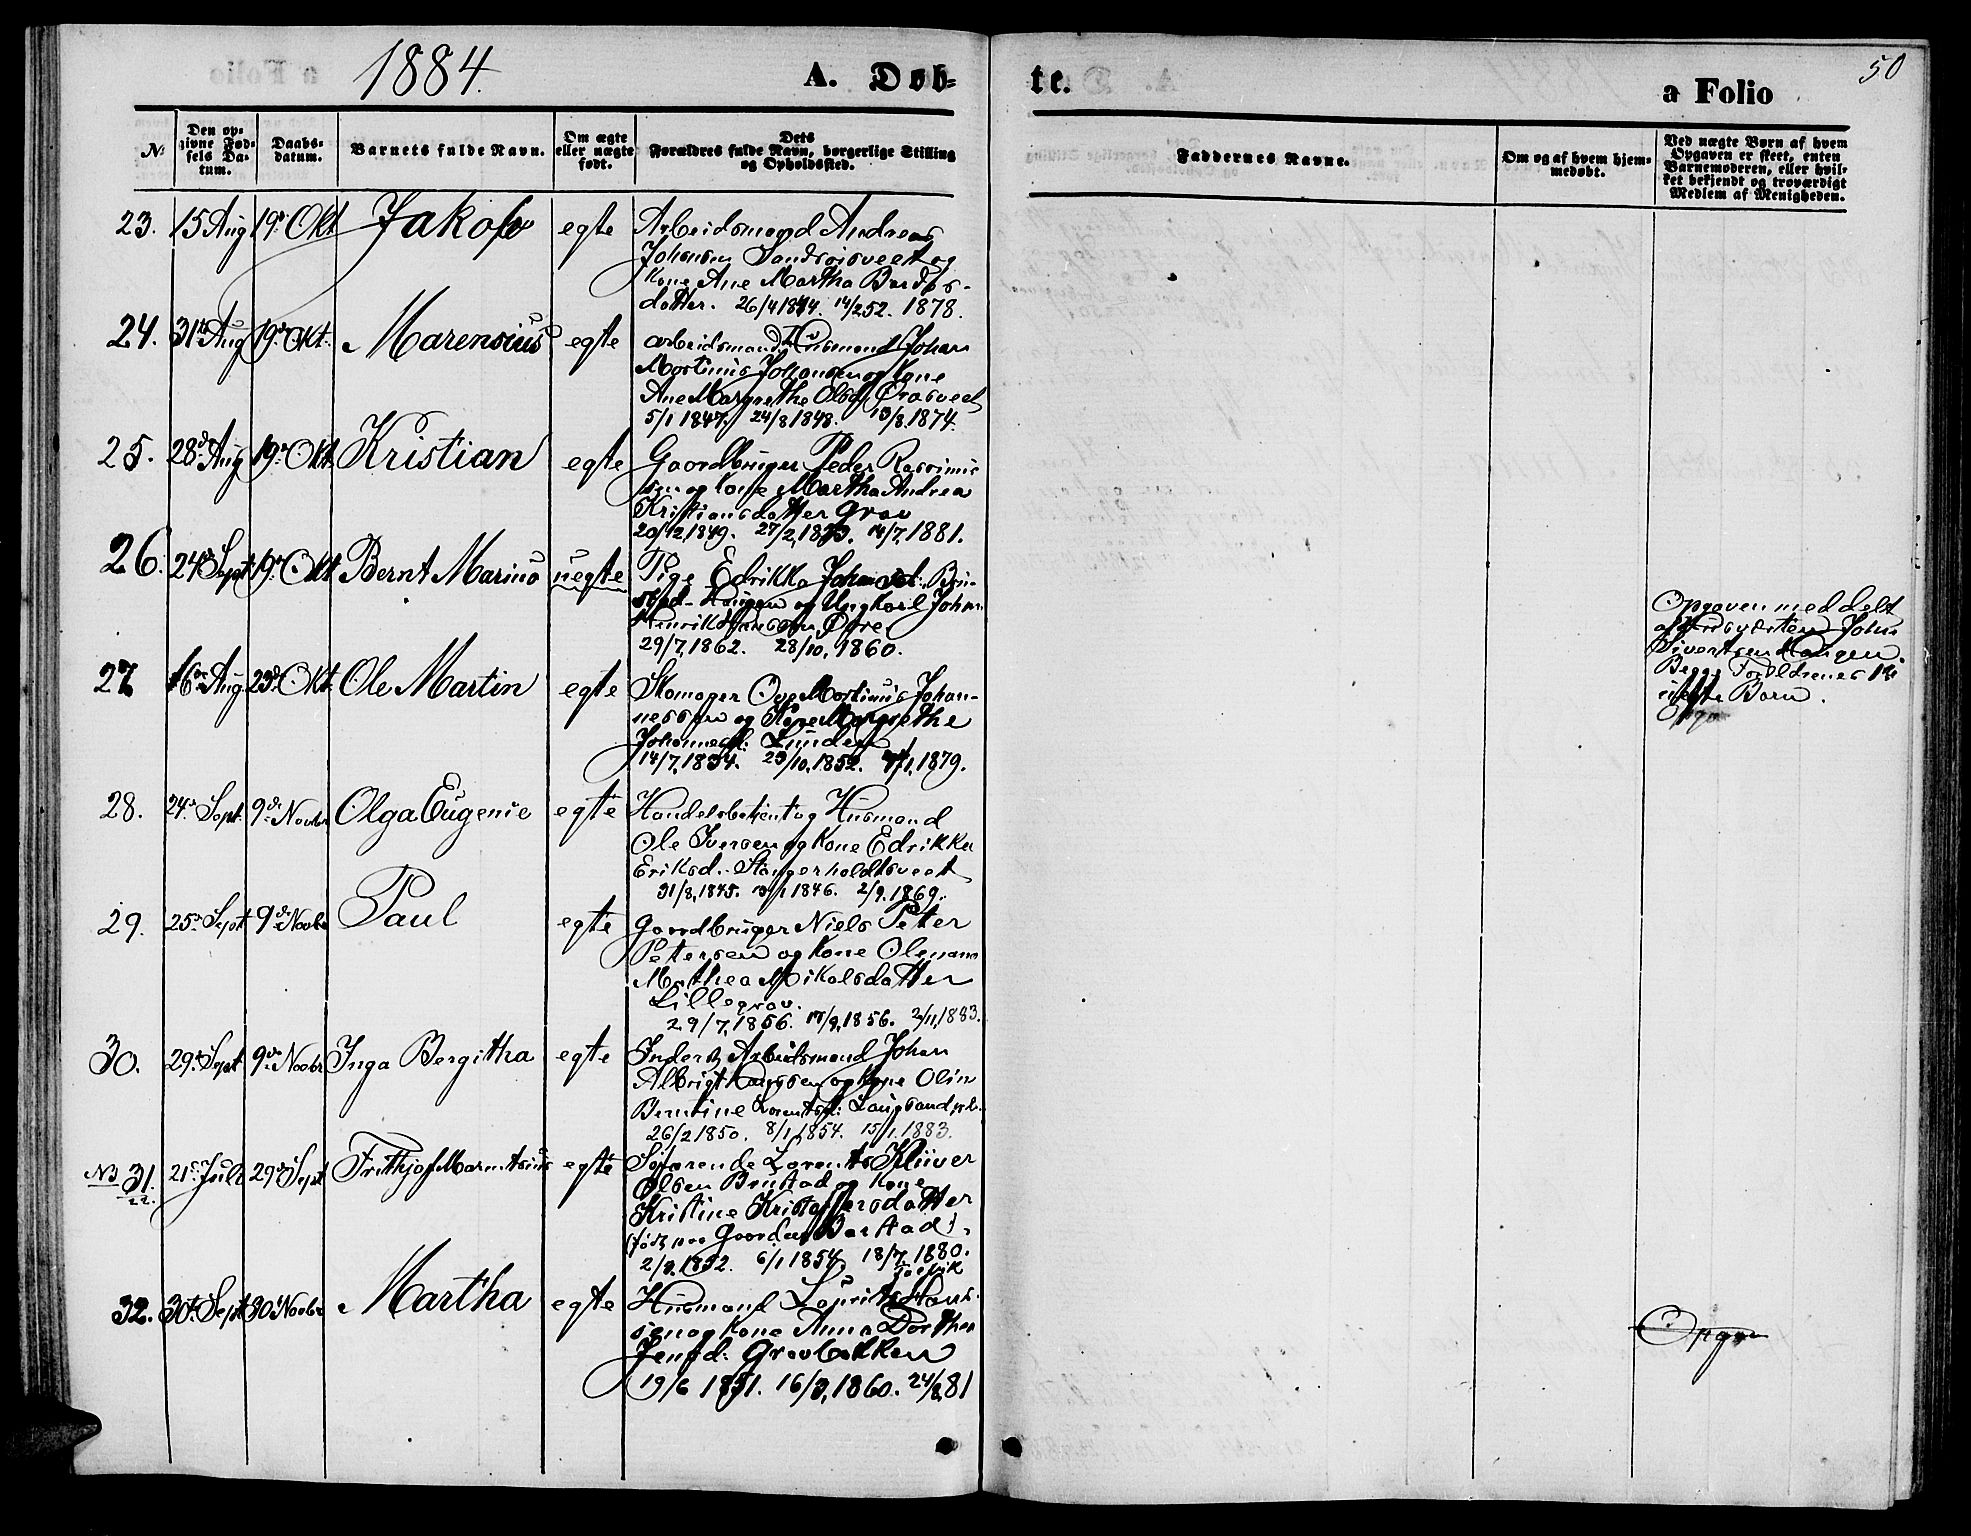 1884.
A. Døb=
te.
a Folio
50
No
Den op-
givne Fød-
sels Da-
tum.
Daabs-
datum.
Barnets fulde Navn.
Om ægte
eller uægte
født.
Dets
Forældres fulde Navn, borgerlige Stilling
og Opholdssted.
Faddernes Navne.
Om og af hvem hjem-
medøbt.
Ved uægte Børn af hvem
Opgaven er skeet, enten
Barnemoderen, eller hvil-
ket bekjendt og troværdigt
Medlem af Menigheden.
23. 15 Aug 19 Okt Jakob egte Arbeidsmand Andreas
Johnsen Sandsøisveet og
Kone Ane Martha
datter. 26/4 1844. 14/2 52. 1878.
24. 31te Aug 19de Okt. Marensius egte arbeidsmand Husmand Johan
Martinus Johansen og Kone
Ane Margrethe Olsd. Ørasveet
5/1 1847. 24/8 1848. 1874.
25. 28de Aug 19de Okt Kristian egte Gaardbruger Peder Rasmus
sen og Kone Martha Andrea
Kristiansdatter Grav
20/12 1849. 14/7, 1881.
26. 24de Sept 19de Okt Bernt Marius uegte Pige Edrikka
Haugen og Ungkarl Johan
Henrik Hanssen Øvre
29/7, 1862. 28/10, 1860.
Opgaven meddelt
af John
Sivertsen Haugen.
Begge Forældrenes 1ste
uegte Barn.
27 16de Aug 23de Okt. Ole Martin egte Skomager Martinus Johan-
nessen og Kone Margrethe
Johannesd: Lunden
14/7, 1834. 23/10, 1852. 1879.
28. 24de Sept 9de Novbr Olga Eugenie egte Handelsbetjent og Husmand
Ole Iversen og Kone Edrikke
Eriksd. Stangerholdtsveet
31/8, 1845. 1846. 2/9, 1869.
29. 25de Sept 9de Novbr Paul egte Gaardbruger Niels Peter
Petersen og Kone Olenanna
Mathea Mikalsdatter
Lillegrav.
29/7, 1856. 1856. 2/11, 1883.
30. 29de Sept 9de Novbr Inga Bergitha egte Inderst, Arbeidsmand Johan
Albrigt Hanssen og Kone Olin
Berntine Lorentsd: Langsand
26/2 1850. 8/1, 1854. 15/1. 1883.
NB 31. 21de Juli 29de Sept Frithjof Marentsius egte Søfarende Lorents Klüver
22.
Olsen Brustad og Kone
Kristine Kristoffersdatter
(født paa Gaarden Barstad).
6/1 1854. 18/7, 1880.
32. 30te Sept 30 Novbr Martha egte Husmand Laurits Hans-
sen og Kone Anna Dorthea
Jensd: Gravbakken
19/6 1851. 1860. 24/8, 81
Opgav